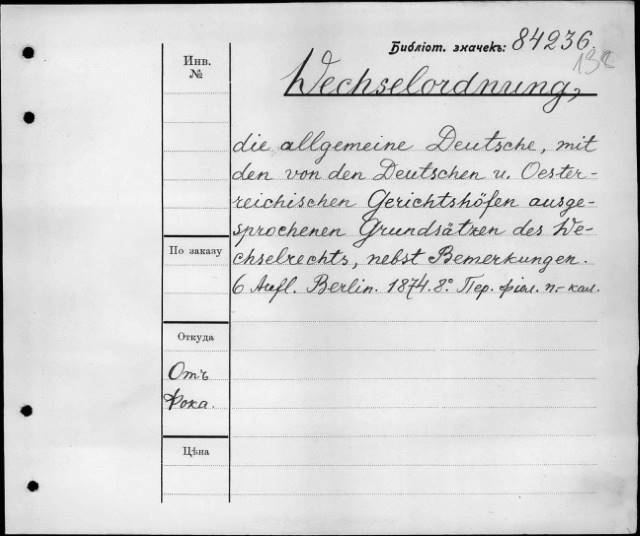 Библіот. значекъ: 84236.
132
Инв.
№
Wechselordnung,
die allgemeine Deutsche, mit
den von den Deutschen u. Oester-
reichischen Gerichtshöfen ausge-
sprochenen Grundsätzen des We-
chselrechts, nebst Bemerkungen.
6 Aufl. Berlin. 1874. 8º. Пер. фіол. п.- кал.
По заказу
Откуда
Отъ
Фока.
Цѣна